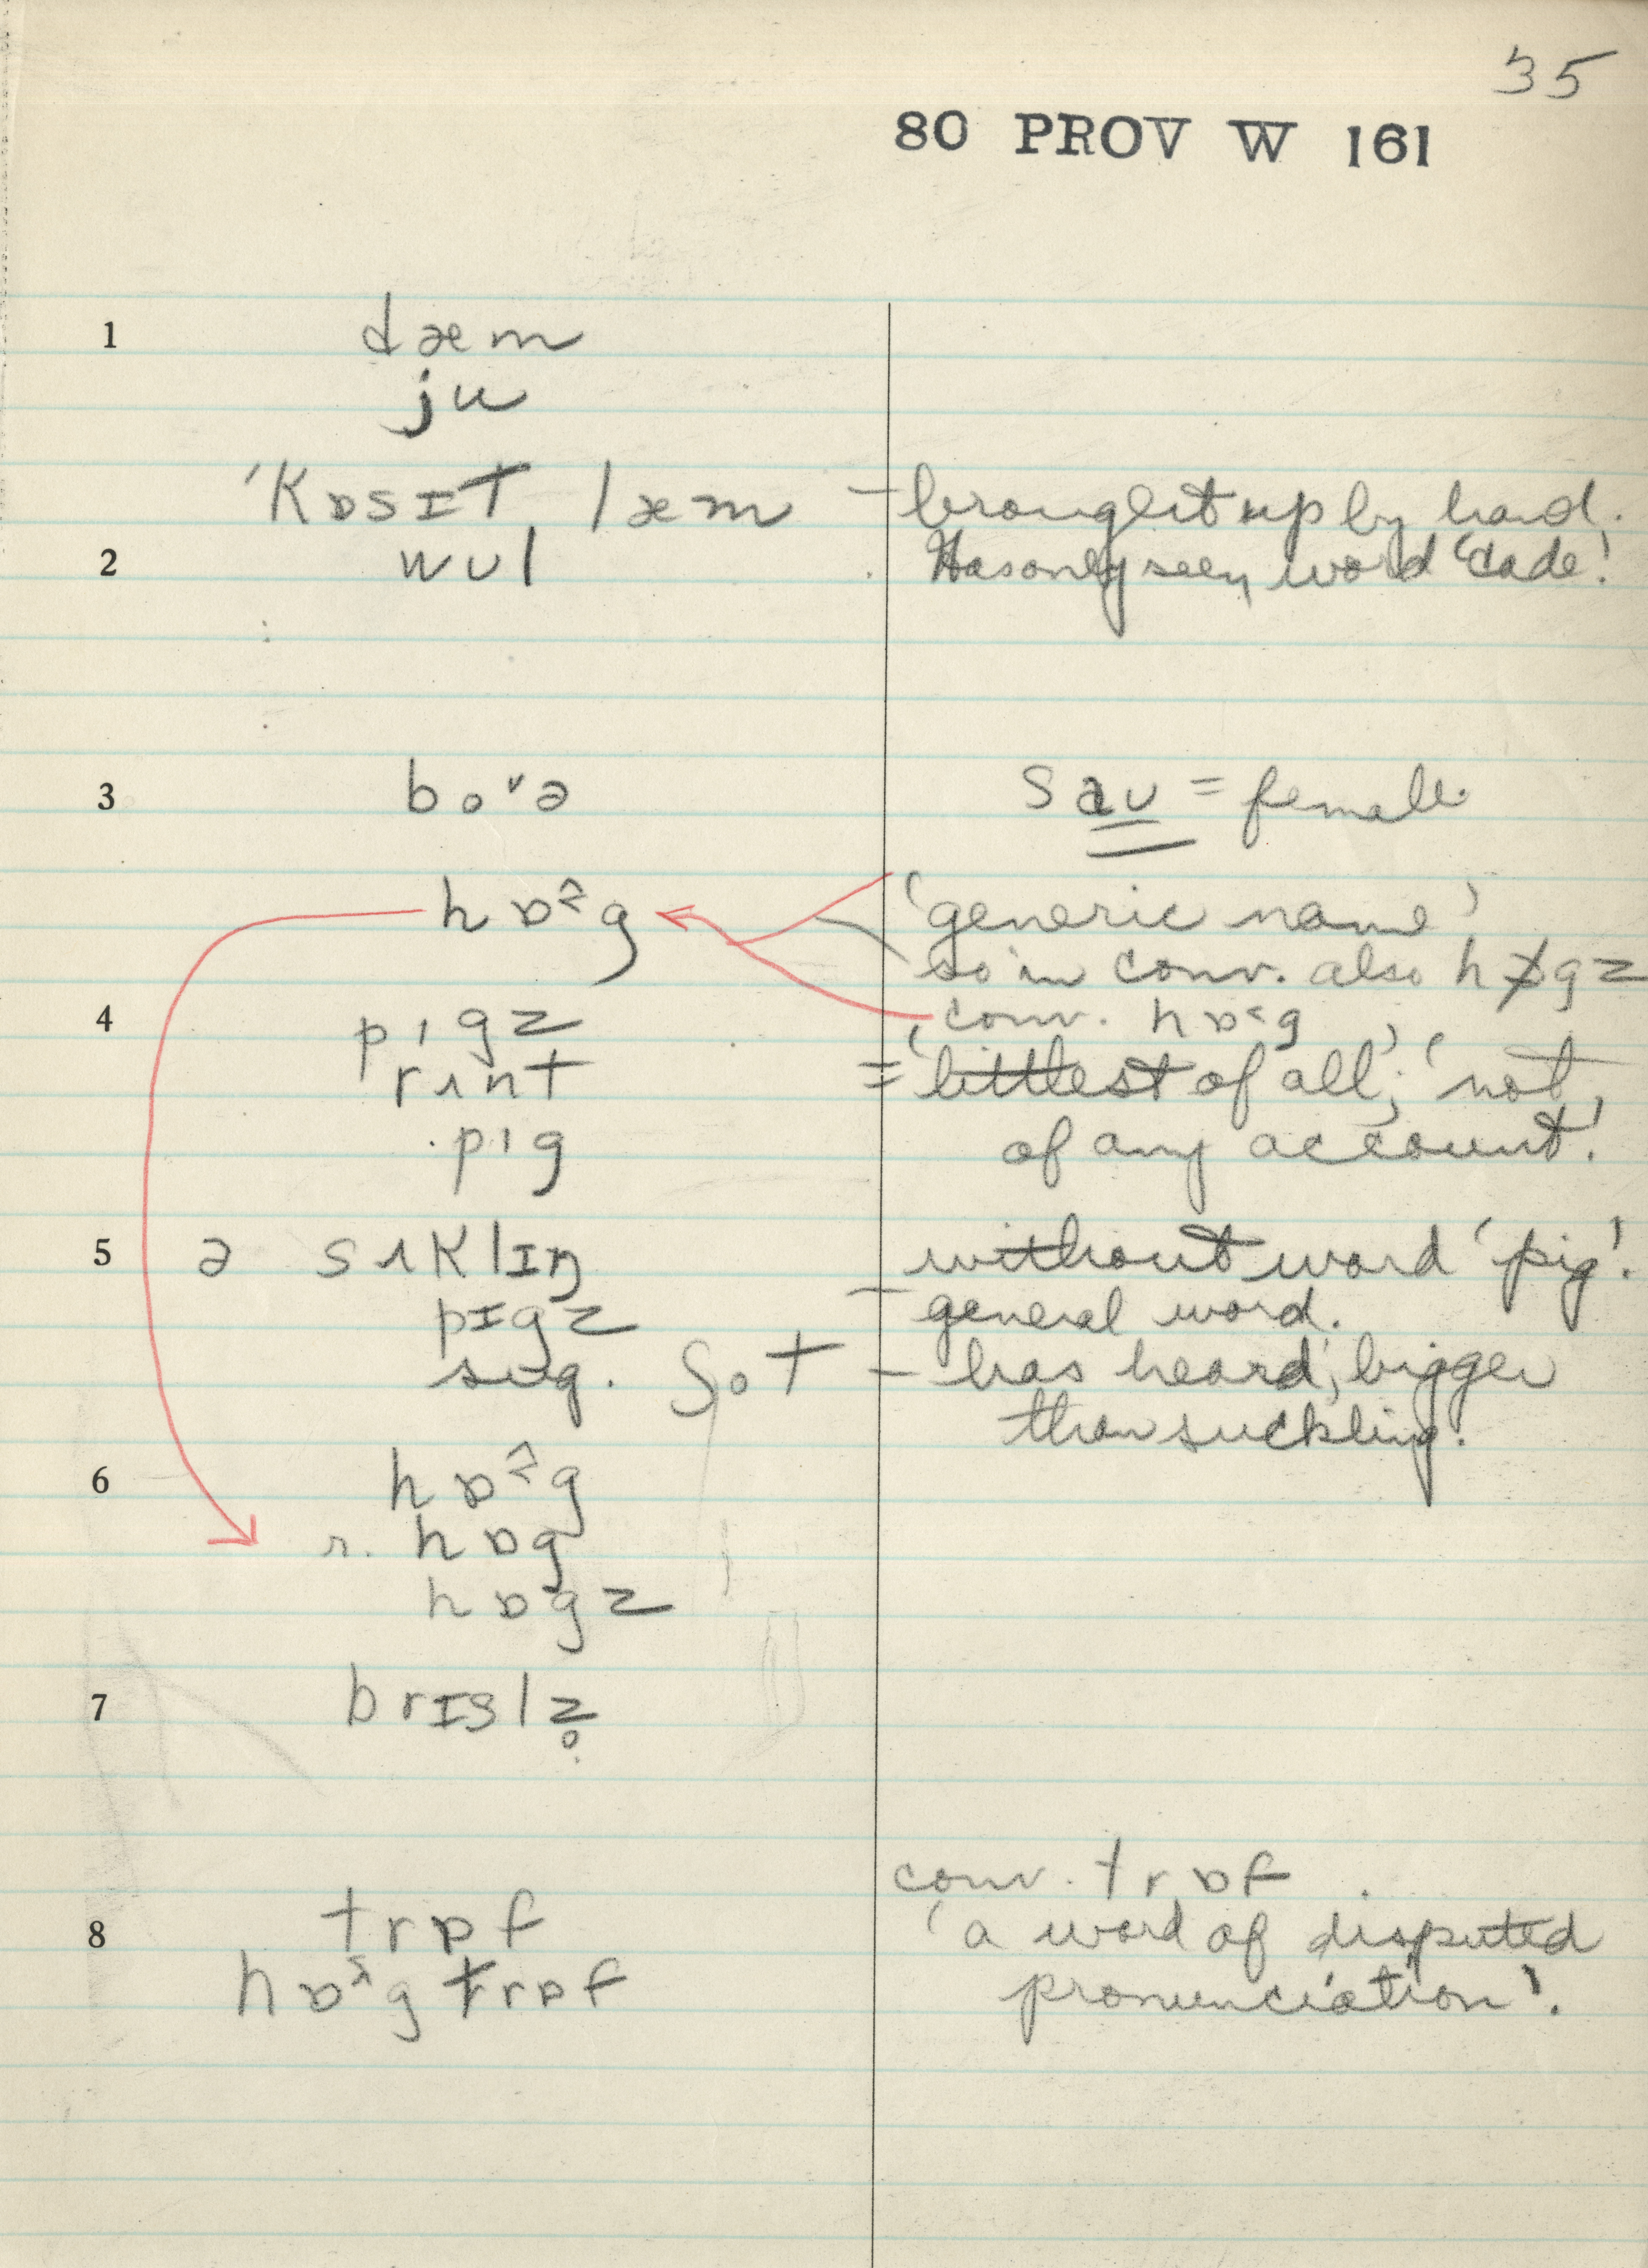 35
80 PROV W 161
1 dæm
ju
ˈkɒsɪt læm – brought up by hand.
2 wʊl Has only seen word 'cade'.
3 boᵛə saʊ = female
hɒ˂̂g 'generic name'
so in conv. also hɒgz
4 pɪgz conv. hɒ˂g
rʌnt = 'littlest of all'; 'not
pɪg of any account'.
5 ə sʌklɪŋ without word 'pig'.
pɪgz – general word.
sug. ʃot – has heard, bigger
than suckling.
6 hɒ˂̂g
r. hɒg
hɒgz
7 brɪslz̥
conv. trɒf
8 trɒf 'a word of disputed
hɒ˂̂g trɒf pronunciation'.